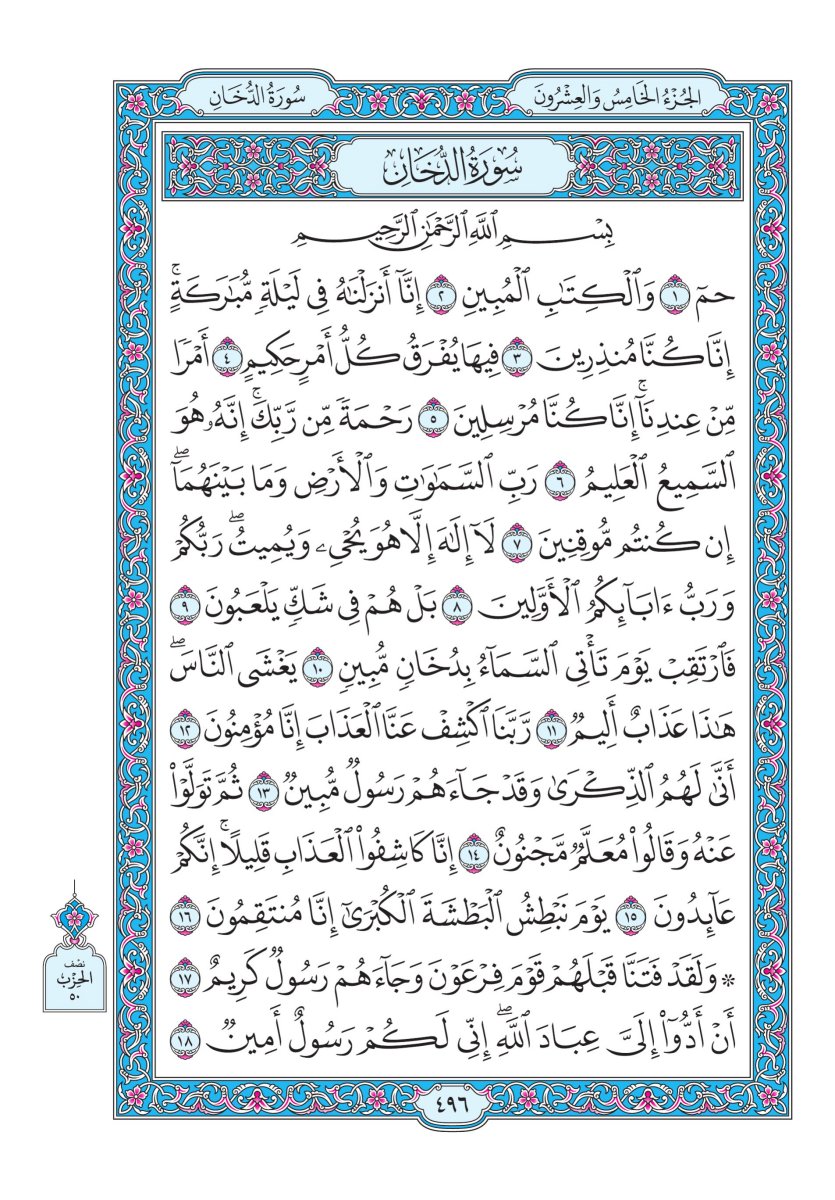 الجُزْءُ الخَامِسُ وَالعِشْرُونَ
سُورَةُ الدُّخَانِ
سُورَةُ الدُّخَانِ
بِسْمِ ٱللَّهِ ٱلرَّحْمَٰنِ ٱلرَّحِيمِ
حمٓ ١ وَٱلْكِتَٰبِ ٱلْمُبِينِ ٢ إِنَّآ أَنزَلْنَٰهُ فِى لَيْلَةٍ مُّبَٰرَكَةٍ ۚ
إِنَّا كُنَّا مُنذِرِينَ ٣ فِيهَا يُفْرَقُ كُلُّ أَمْرٍ حَكِيمٍ ٤ أَمْرًا
مِّنْ عِندِنَآ ۚ إِنَّا كُنَّا مُرْسِلِينَ ٥ رَحْمَةً مِّن رَّبِّكَ ۚ إِنَّهُۥ هُوَ
ٱلسَّمِيعُ ٱلْعَلِيمُ ٦ رَبِّ ٱلسَّمَٰوَٰتِ وَٱلْأَرْضِ وَمَا بَيْنَهُمَآ ۖ
إِن كُنتُم مُّوقِنِينَ ٧ لَآ إِلَٰهَ إِلَّا هُوَ يُحْىِۦ وَيُمِيتُ ۖ رَبُّكُمْ
وَرَبُّ ءَابَآئِكُمُ ٱلْأَوَّلِينَ ٨ بَلْ هُمْ فِى شَكٍّ يَلْعَبُونَ ٩
فَٱرْتَقِبْ يَوْمَ تَأْتِى ٱلسَّمَآءُ بِدُخَانٍ مُّبِينٍ ١٠ يَغْشَى ٱلنَّاسَ ۖ
هَٰذَا عَذَابٌ أَلِيمٌ ١١ رَّبَّنَا ٱكْشِفْ عَنَّا ٱلْعَذَابَ إِنَّا مُؤْمِنُونَ ١٢
أَنَّىٰ لَهُمُ ٱلذِّكْرَىٰ وَقَدْ جَآءَهُمْ رَسُولٌ مُّبِينٌ ١٣ ثُمَّ تَوَلَّوْا۟
عَنْهُ وَقَالُوا۟ مُعَلَّمٌ مَّجْنُونٌ ١٤ إِنَّا كَاشِفُوا۟ ٱلْعَذَابِ قَلِيلًا ۚ إِنَّكُمْ
عَآئِدُونَ ١٥ يَوْمَ نَبْطِشُ ٱلْبَطْشَةَ ٱلْكُبْرَىٰٓ إِنَّا مُنتَقِمُونَ ١٦
۞ وَلَقَدْ فَتَنَّا قَبْلَهُمْ قَوْمَ فِرْعَوْنَ وَجَآءَهُمْ رَسُولٌ كَرِيمٌ ١٧
أَنْ أَدُّوٓا۟ إِلَىَّ عِبَادَ ٱللَّهِ ۖ إِنِّى لَكُمْ رَسُولٌ أَمِينٌ ١٨
نصف
الحزب
٥٠
٤٩٦